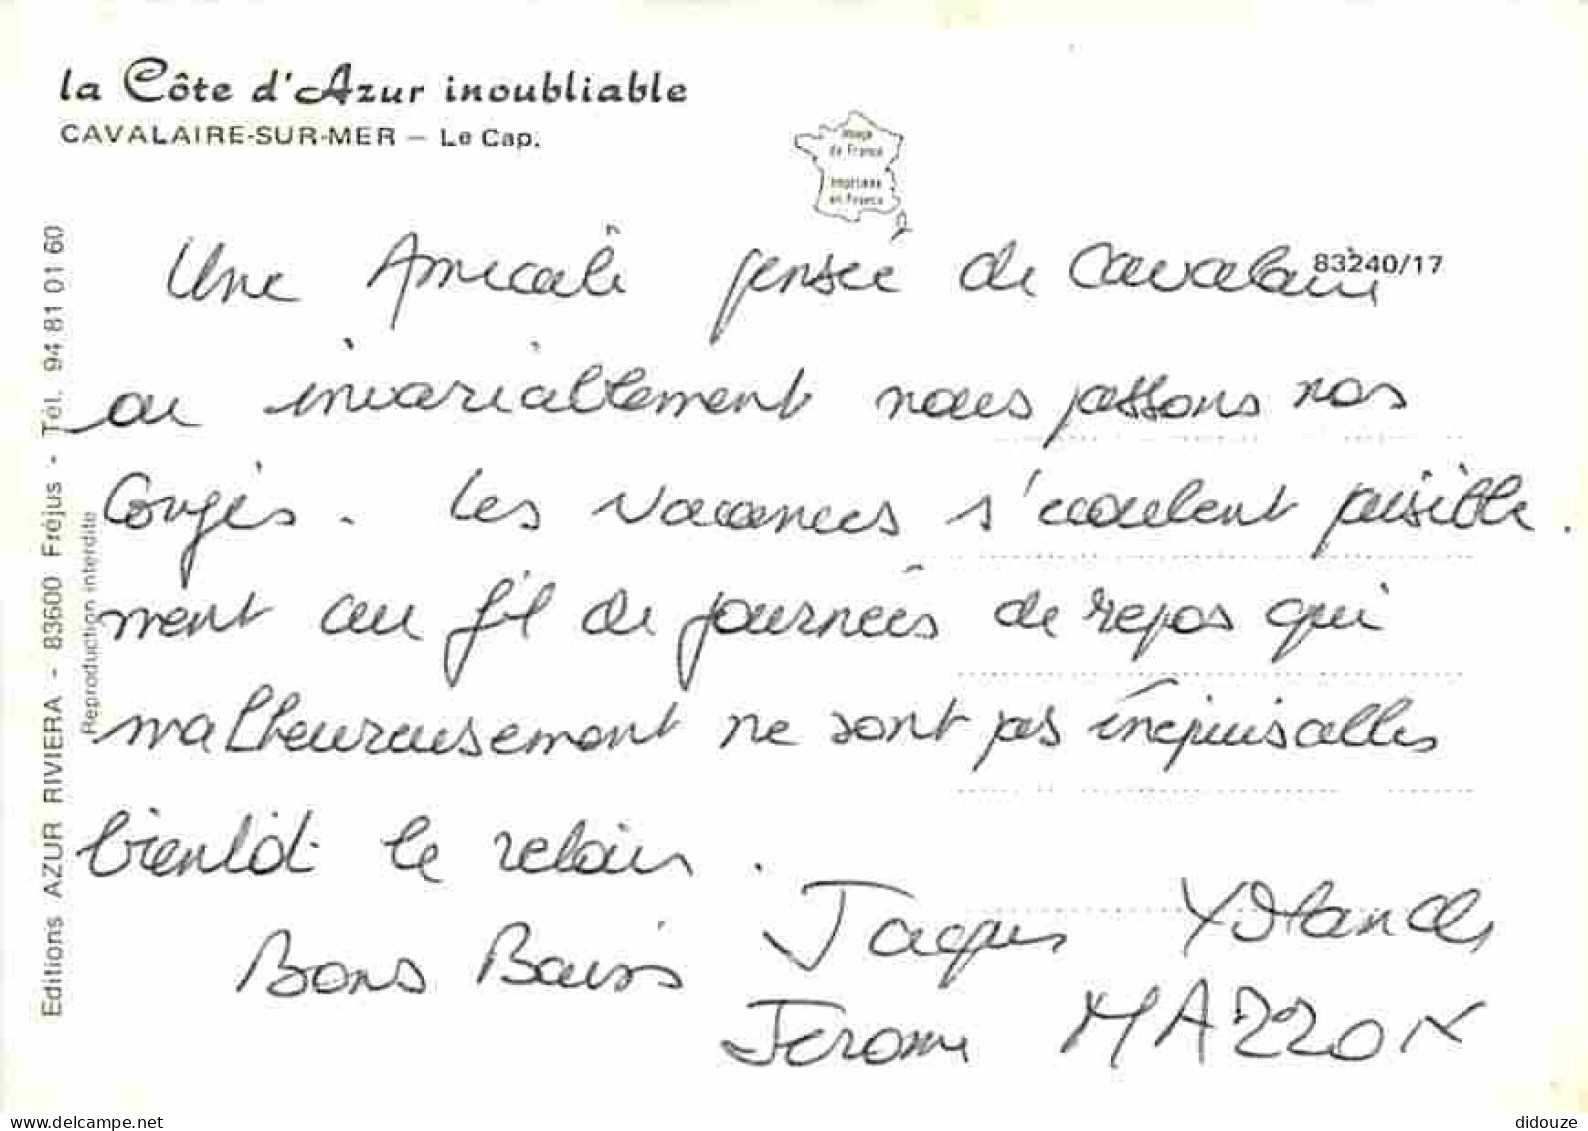 la Côte d'Azur inoubliable
CAVALAIRE-SUR-MER — Le Cap.
Image
de France
Imprimée
en France
83240/17
Une Amicale pensée de Cavalaire
ou invariablement nous passons nos
Congés. Les vacances s'écoulent paisible.
ment au fil de journées de repos qui
malheureusement ne sont pas inépuisables
bientôt le relais.
Bons Baisers
Jacques Yolande
Jérome MAZZON
Editions AZUR RIVIERA - 83600 Fréjus - Tél. 94 81 01 60
Reproduction interdite
delcampe.net
didouze